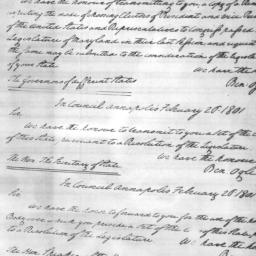 We have the honour of transmitting to you a copy of a
the mode of choosing electors of President and Vice Presi
of the United States and Representatives to Congress passed
Legislature of Maryland at their last Session and request
the same may be submitted to the consideration of the Legisla
of your State
We have the
Ben. O
The Governors of different States
In Council Annapolis February 20th 1801
Sir
We have the honour to transmit to you a set of the
of this State pursuant to a Resolution of the Legislature
We have the honour
Ben. Ogle
The Hon. The Secretary of State
In Council Annapolis February 20th 1801
Sir
We have the honor to forward to you for the use of the
Body over which you preside a set of the of this State
to a Resolution of the Legislature
We have the ho
Ben.
The Hon.